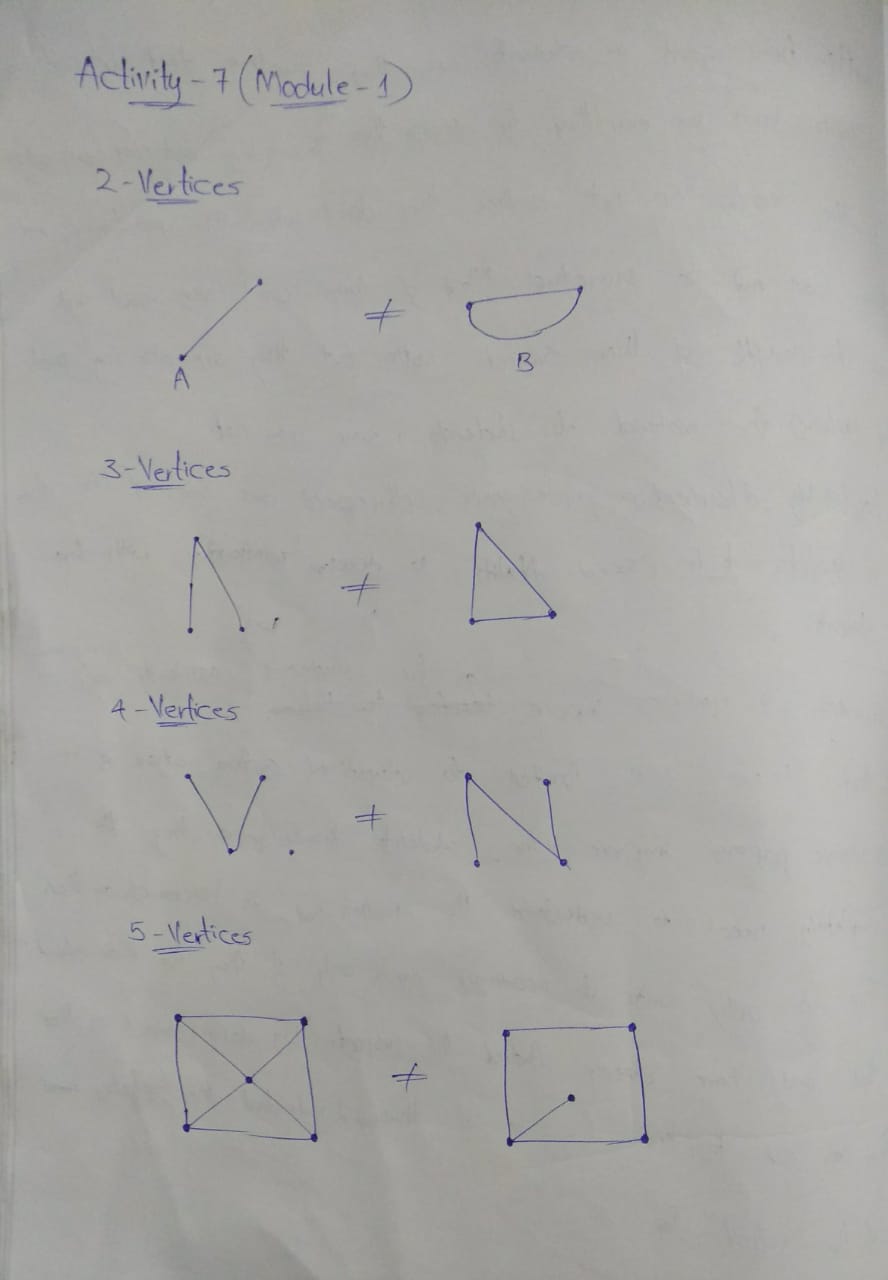 Activity-7 (Module-1)
2-Vertices
≠
A
B
3-Vertices
≠
4-Vertices
≠
5-Vertices
≠